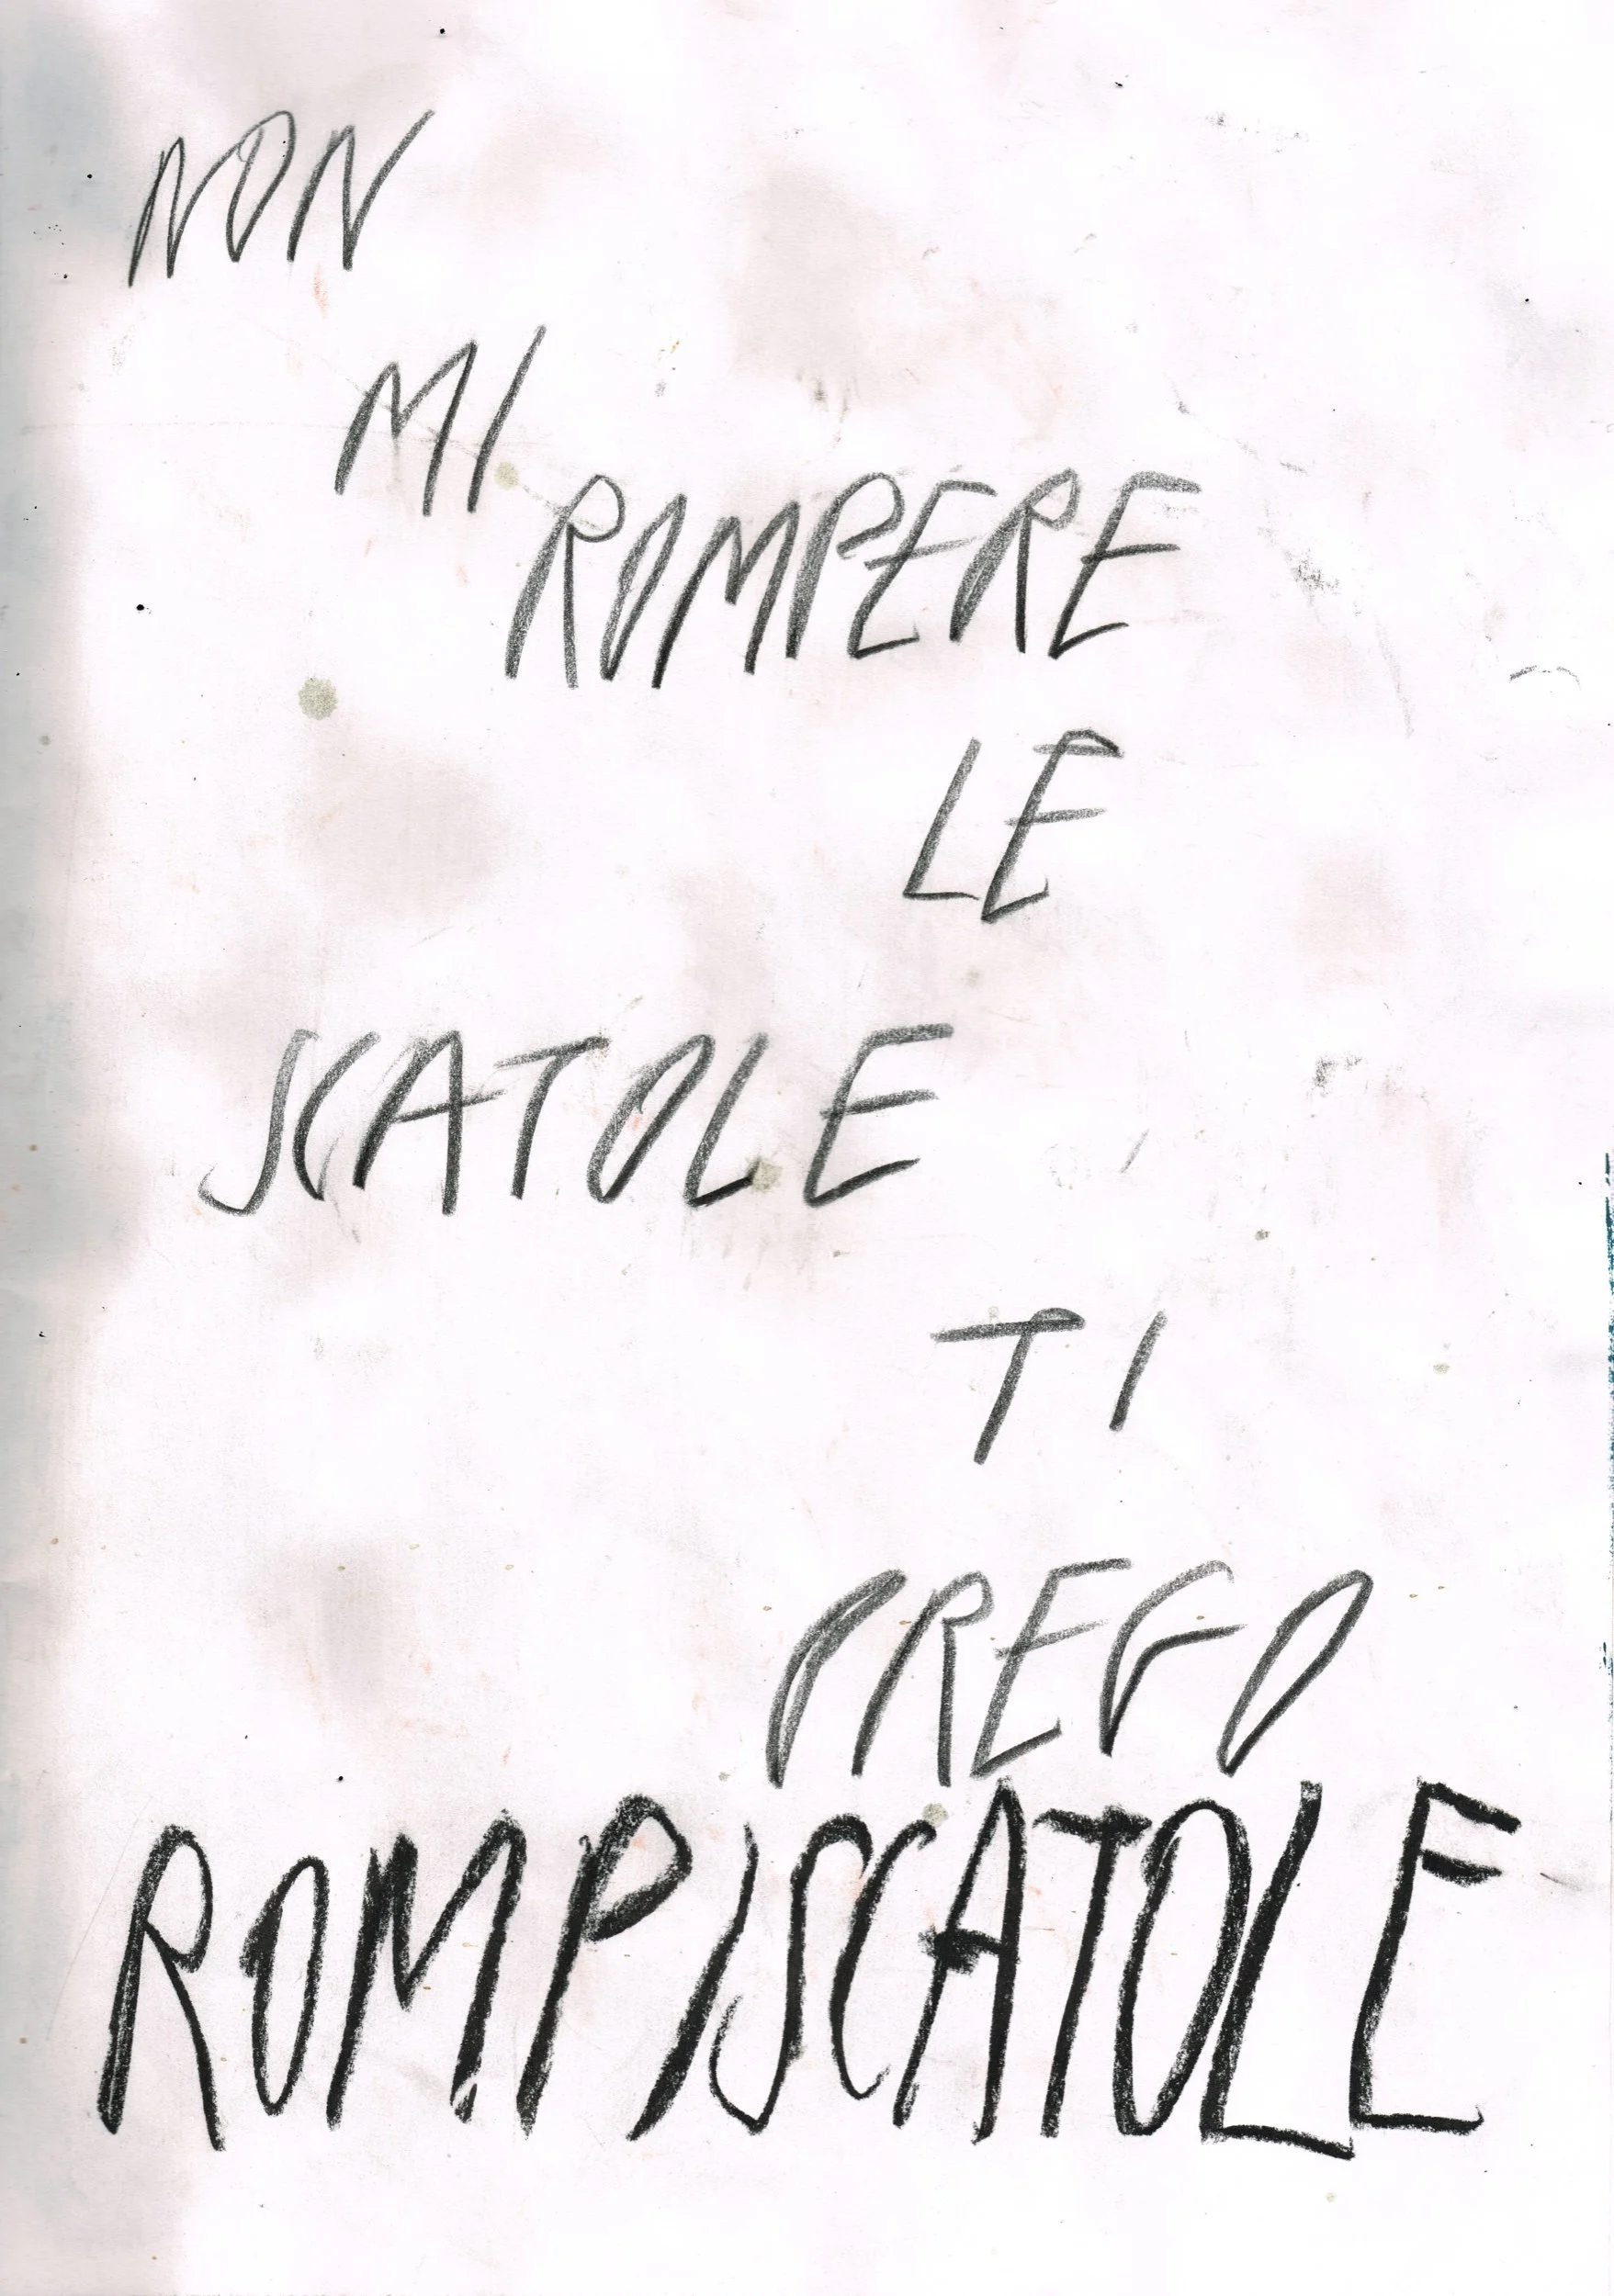 NON
MI
ROMPERE
LE
SCATOLE
TI
PREGO
ROMPISCATOLE